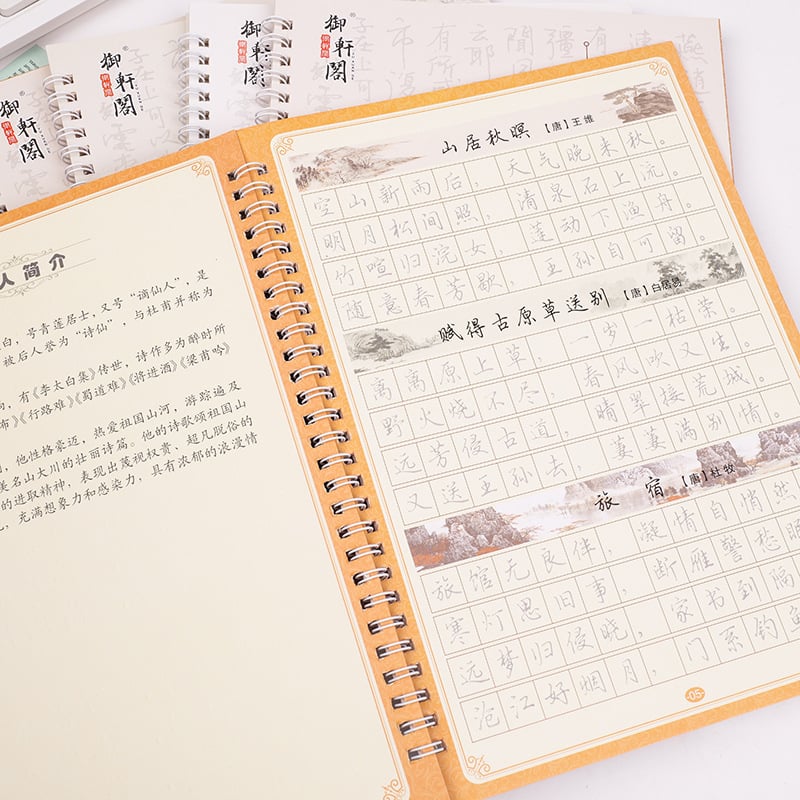 御軒閣
御軒閣
御軒閣
御軒閣
人简介
白，号青莲居士，又号“谪仙人”，是
被后人誉为“诗仙”，与杜甫并称为
，有《李太白集》传世，诗作多为醉时所
布》《行路难》《蜀道难》《将进酒》《梁甫吟》
，他性格豪迈，热爱祖国山河，游踪遍及
美名山大川的壮丽诗篇。他的诗歌颂祖国山
的进取精神，表现出蔑视权贵、超凡脱俗的
，充满想象力和感染力，具有浓郁的浪漫情
山居秋暝 【唐】王维
空山新雨后，天气晚来秋。
明月松间照，清泉石上流。
竹喧归浣女，莲动下渔舟。
随意春芳歇，王孙自可留。
赋得古原草送别 【唐】白居易
离离原上草，一岁一枯荣。
野火烧不尽，春风吹又生。
远芳侵古道，晴翠接荒城。
又送王孙去，萋萋满别情。
旅宿 【唐】杜牧
旅馆无良伴，凝情自悄然
寒灯思旧事，断雁警愁眠
远梦归侵晓，家书到隔
沧江好烟月，门系钓鱼
05